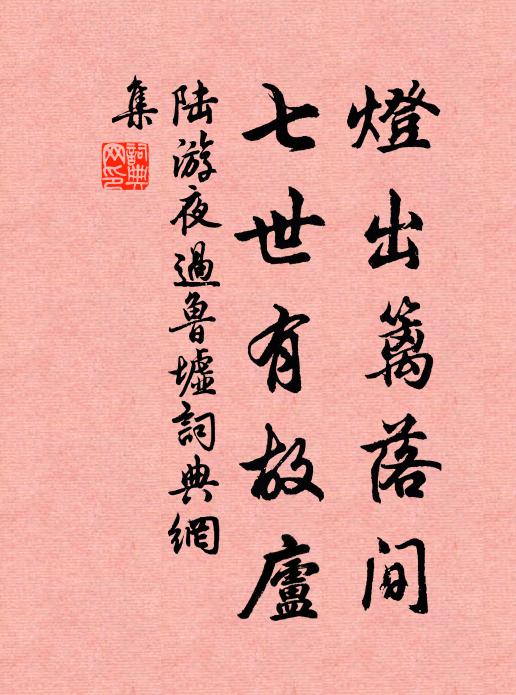 燈出籬落間
七世有故廬
陸游夜過魯墟詞典網
集
詞典網印